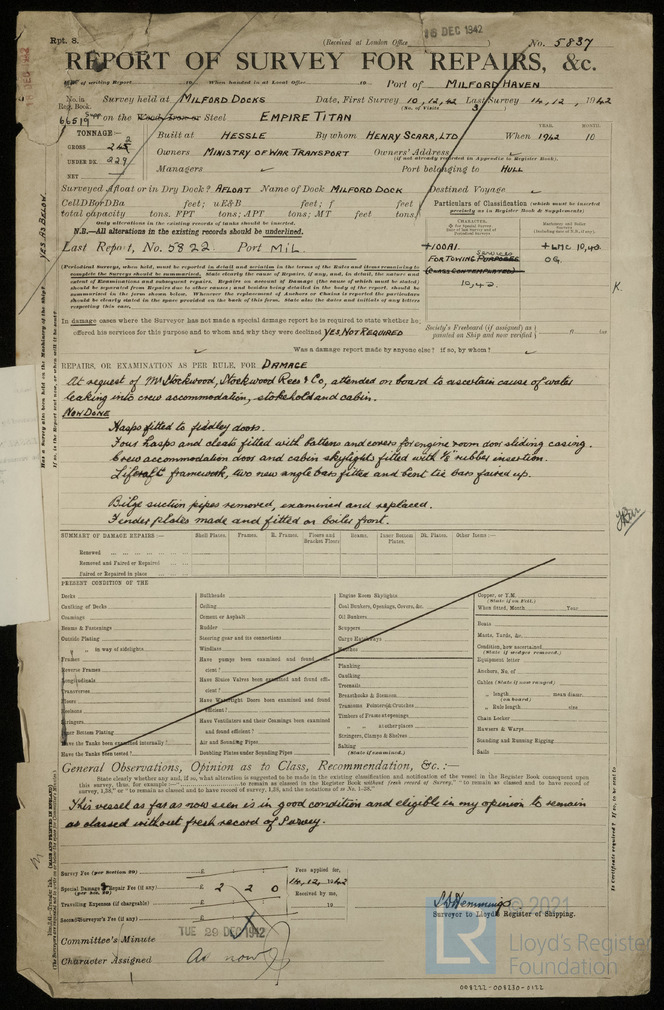 Rpt. 8.
(Received at London Office
16 DEC 1942
No. 5837
REPORT OF SURVEY FOR REPAIRS, &c.
of writing Report 19 When handed in at Local Office 19 Port of MILFORD HAVEN
No. in Reg. Book. Survey held at MILFORD DOCKS Date, First Survey 10, 12, 42 Last Survey 14, 12, 1942
(No. of Visits 3 )
66519 on the Steel EMPIRE TITAN
TONNAGE:— Built at HESSLE By whom HENRY SCARR, LTD. When 1942 10
YEAR. MONTH.
GROSS
UNDER DK. 229
NET
Owners MINISTRY OF WAR TRANSPORT Owners' Address
(if not already recorded in Appendix to Register Book).
Managers Port belonging to HULL
Surveyed Afloat or in Dry Dock? AFLOAT Name of Dock MILFORD DOCK Destined Voyage
CellDBorDBa feet; uE&B feet; f feet
total capacity tons. FPT tons; APT tons; MT feet tons,
only alterations in the existing records of tanks should be inserted.
N.B.—All alterations in the existing records should be underlined.
Particulars of Classification (which must be inserted precisely as in Register Book & Supplements)
Last Report, No. 5822 Port MIL.
+100A1.
FOR TOWING PURPOSES
SERVICES
(CLASS CONTEMPLATED)
10,42.
+LMC 10,42
OG.
YES AS BELOW.
K.
(Periodical Surveys, when held, must be reported in detail and seriatim in the terms of the Rules and those remaining to complete the Survey should be summarized.
In damage cases where the Surveyor has not made a special damage report he is required to state whether he
offered his services for this purpose and to whom and why they were declined YES, NOT REQUIRED
Society's Freeboard (if assigned) as painted on Ship and now verified
Was a damage report made by anyone else? if so, by whom?
REPAIRS, OR EXAMINATION AS PER RULE, FOR DAMAGE
At request of Mr Stockwood, Stockwood Rees & Co, attended on board to ascertain cause of water
leaking into crew accommodation, stokehold and cabin.
NOW DONE
Hasps fitted to fiddley doors.
Four hasps and cleats fitted with battens and covers for engine room door sliding casing.
Crew accommodation door and cabin skylight fitted with 1/8" rubber insertion.
Liferaft framework, two new angle bars fitted and bent tie bars faired up.
Bilge suction pipes removed, examined and replaced.
Fender plates made and fitted on boiler front.
SUMMARY OF DAMAGE REPAIRS:— Shell Plates. Frames. R. Frames. Floors and Bracket Floors Beams. Inner Bottom Plates. Dk. Plates. Other Items:—
Renewed
Removed and Faired or Repaired
Faired or Repaired in place
PRESENT CONDITION OF THE
Decks
Caulking of Decks
Coamings
Beams & Fastenings
Outside Plating
" " in way of sidelights
Frames
Reverse Frames
Longitudinals
Transverses
Floors
Keelsons
Stringers
Inner Bottom Plating
Have the Tanks been examined internally?
Have the Tanks been tested?
Bulkheads
Ceiling
Cement or Asphalt
Rudder
Steering gear and its connections
Windlass
Have pumps been examined and found efficient?
Have Sluice Valves been examined and found efficient?
Have Watertight Doors been examined and found efficient?
Have Ventilators and their Coamings been examined and found efficient?
Air and Sounding Pipes
Doubling Plates under Sounding Pipes
Engine Room Skylights
Coal Bunkers, Openings, Covers, &c.
Oil Bunkers
Scuppers
Cargo Hatchways
Hatches
Planking
Caulking
Treenails
Breasthooks & Riemens
Transoms, Pointers & Crutches
Timbers of Frame at openings
" " at other places
Stringers, Clamps & Shelves
Salting
(State if examined.)
Copper, or Y.M.
(State if on Felt.)
When fitted, Month Year
Boats
Masts, Yards, &c.
Condition, how ascertained
(State if wedges removed.)
Equipment letter
Anchors, No. of
Cables (State if now ranged)
" length mean diamr.
(on board)
" Rule length size
Chain Locker
Hawsers & Warps
Standing and Running Rigging
Sails
General Observations, Opinion as to Class, Recommendation, &c.:—
State clearly whether any, and if so, what alteration is suggested to be made in the existing classification and notification of the vessel in the Register Book consequent upon
This vessel as far as now seen is in good condition and eligible in my opinion to remain
as classed without fresh record of Survey.
Survey Fee (per Section 29) £ : :
Special Damage or Repair Fee (if any) £ 2 2 0
(per Sec. 29)
Travelling Expenses (if chargeable) £ : :
Second Surveyor's Fee (if any) £ : :
Fees applied for,
14, 12, 1942
Received by me,
19
Surveyor to Lloyd's Register of Shipping.
Committee's Minute TUE 29 DEC 1942
Character Assigned As now
© 2021
LR
Lloyd's Register
Foundation
008222-008230-0122